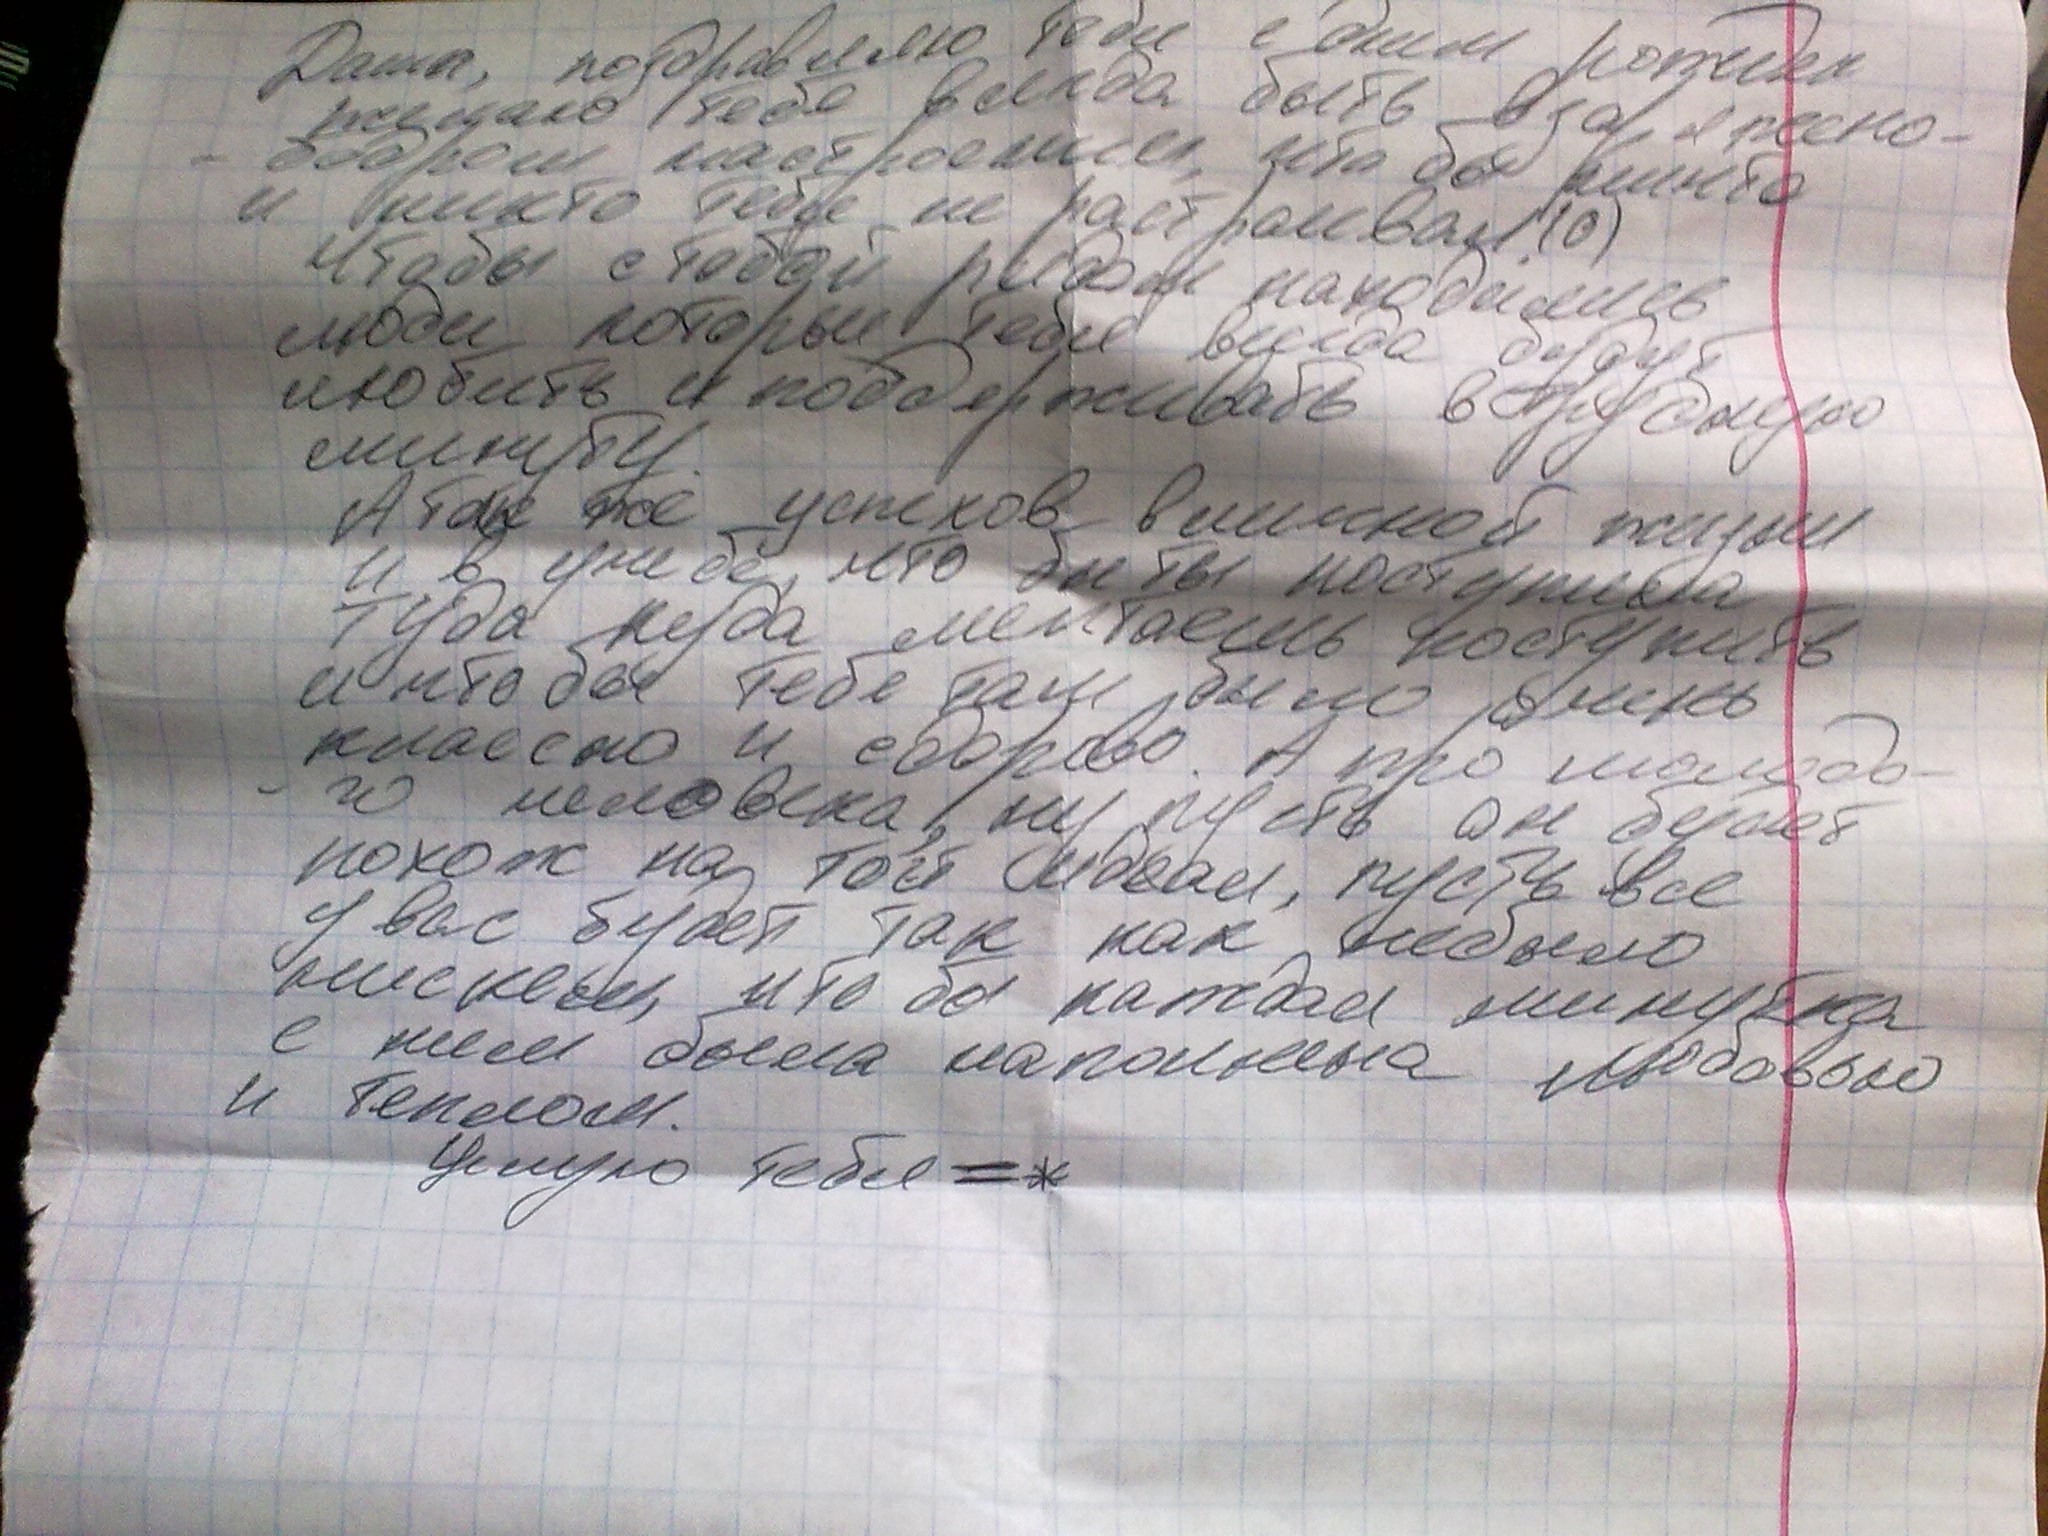 Даша, поздравляю тебя с днем рожден
желаю тебе всегда быть в
- бодром настроении, что бы никто
и никто тебя не растраивал!(о)
Чтобы с тобой рядом находились
люди которые тебя всегда будут
любить и поддерживать в трудную
минуту.
А так же успехов в личной жизни
и в учебе, что бы ты поступила
туда куда мечтаешь поступить
и что бы тебе там было очень
классно и здорово. А про молодо-
- го человека, ну пусть он будет
похож на тот идеал, пусть все
у вас будет так как небыло
ни с кем, что бы каждая минутка
с ним была наполнена любовью
и теплом.
Целую тебя =*